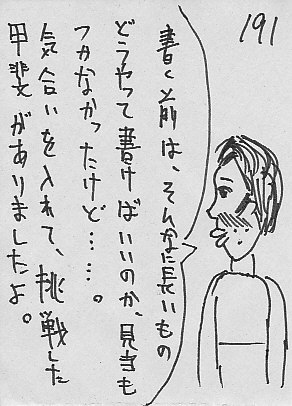 191
書く前は、そんなに長いもの
どうやって書けばいいのか、見当も
つかなかったけど……。
気合いを入れて、挑戦した
甲斐がありましたよ。